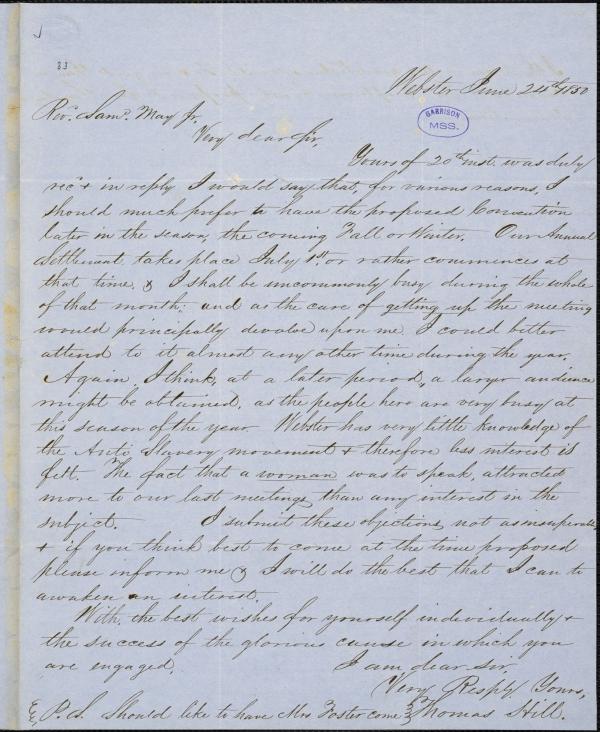 33
Webster June 24th/1850
GARRISON
MSS.
Rev. Saml. May Jr.
Very dear Sir,
Yours of 20th inst. was duly
rec'd & in reply I would say that, for various reasons, I
should much prefer to have the proposed Convention
later in the season, the coming Fall or Winter. Our Annual
Settlement takes place July 1st. or rather commences at
that time, & I shall be uncommonly busy during the whole
of that month; and as the care of getting up the meeting
would principally devolve upon me I could better
attend to it almost any other time during the year.
Again, I think, at a later period, a larger audience
might be obtained, as the people here are very busy at
this season of the year. Webster has very little knowledge of
the Anti Slavery movement & therefore less interest is
felt. The fact that a woman was to speak, attracted
more to our last meetings, than any interest in the
subject. I submit these objections, not as insuperable,
& if you think best to come at the time proposed
please inform me & I will do the best that I can to
awaken an interest.
With, the best wishes for yourself individually &
the success of the glorious cause in which you
are engaged, I am dear sir
Very Resply. Yours,
Thomas Hill.
P.S. Should like to have Mrs Foster come